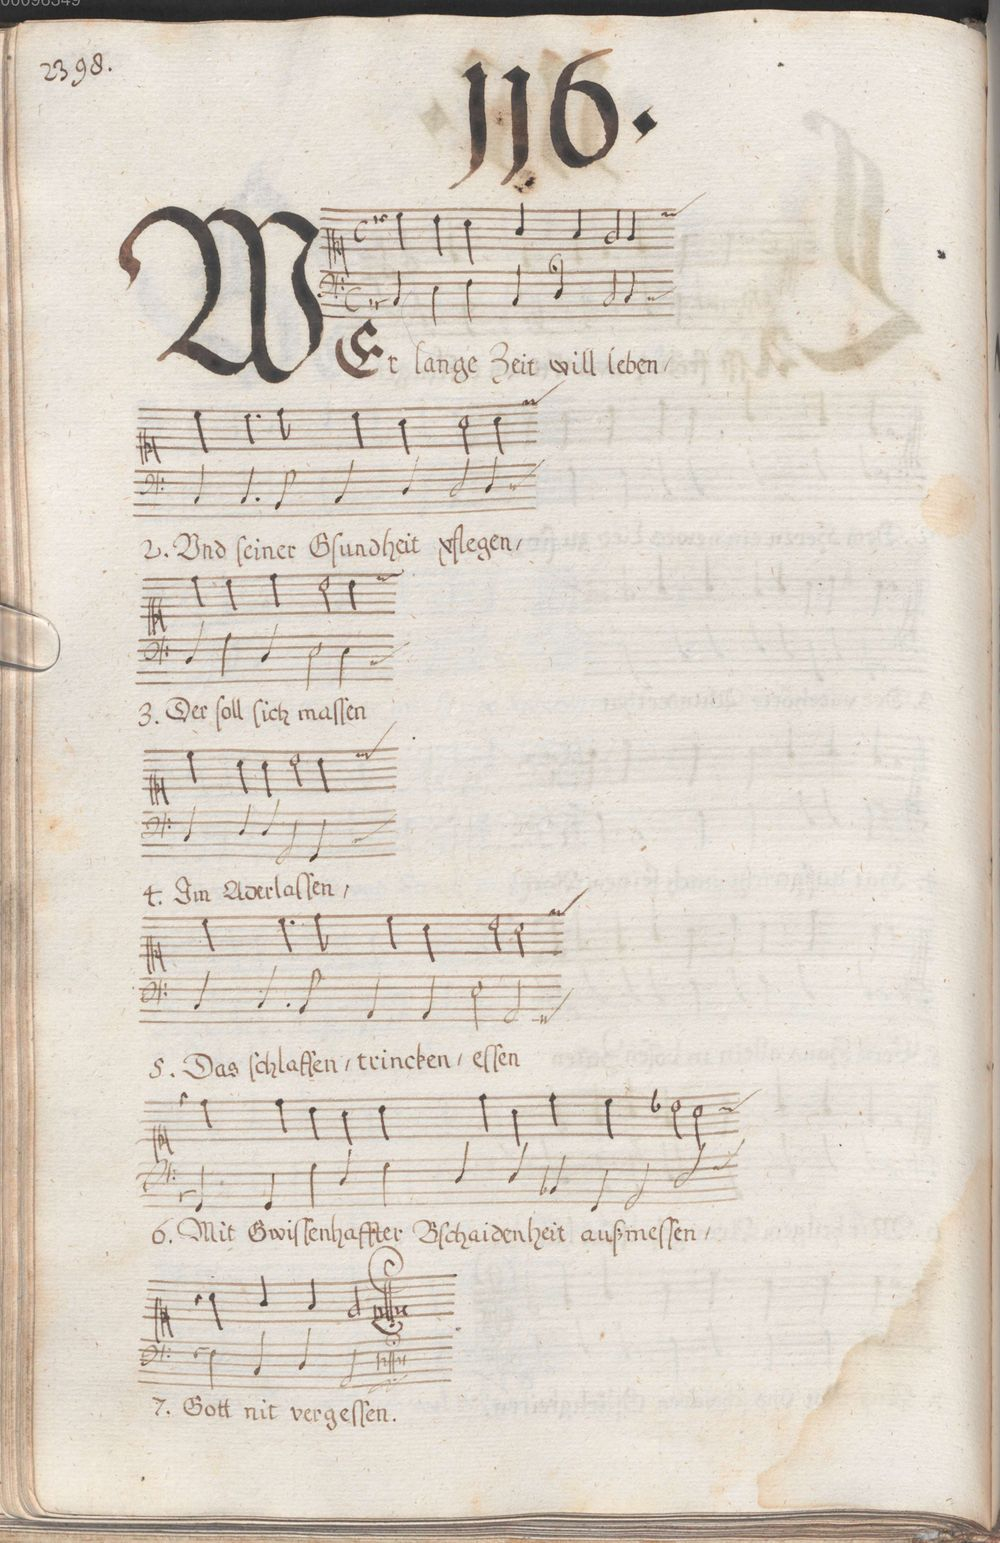 00096349
2398.
116.
WEr lange Zeit will leben/
2. Vnd seiner Gsundheit pflegen/
3. Der soll sich massen
4. Im Aderlassen/
5. Das schlaffen/ trincken/ essen
6. Mit Gwissenhaffter Bschaidenheit außmessen/
7. Gott nit vergessen.